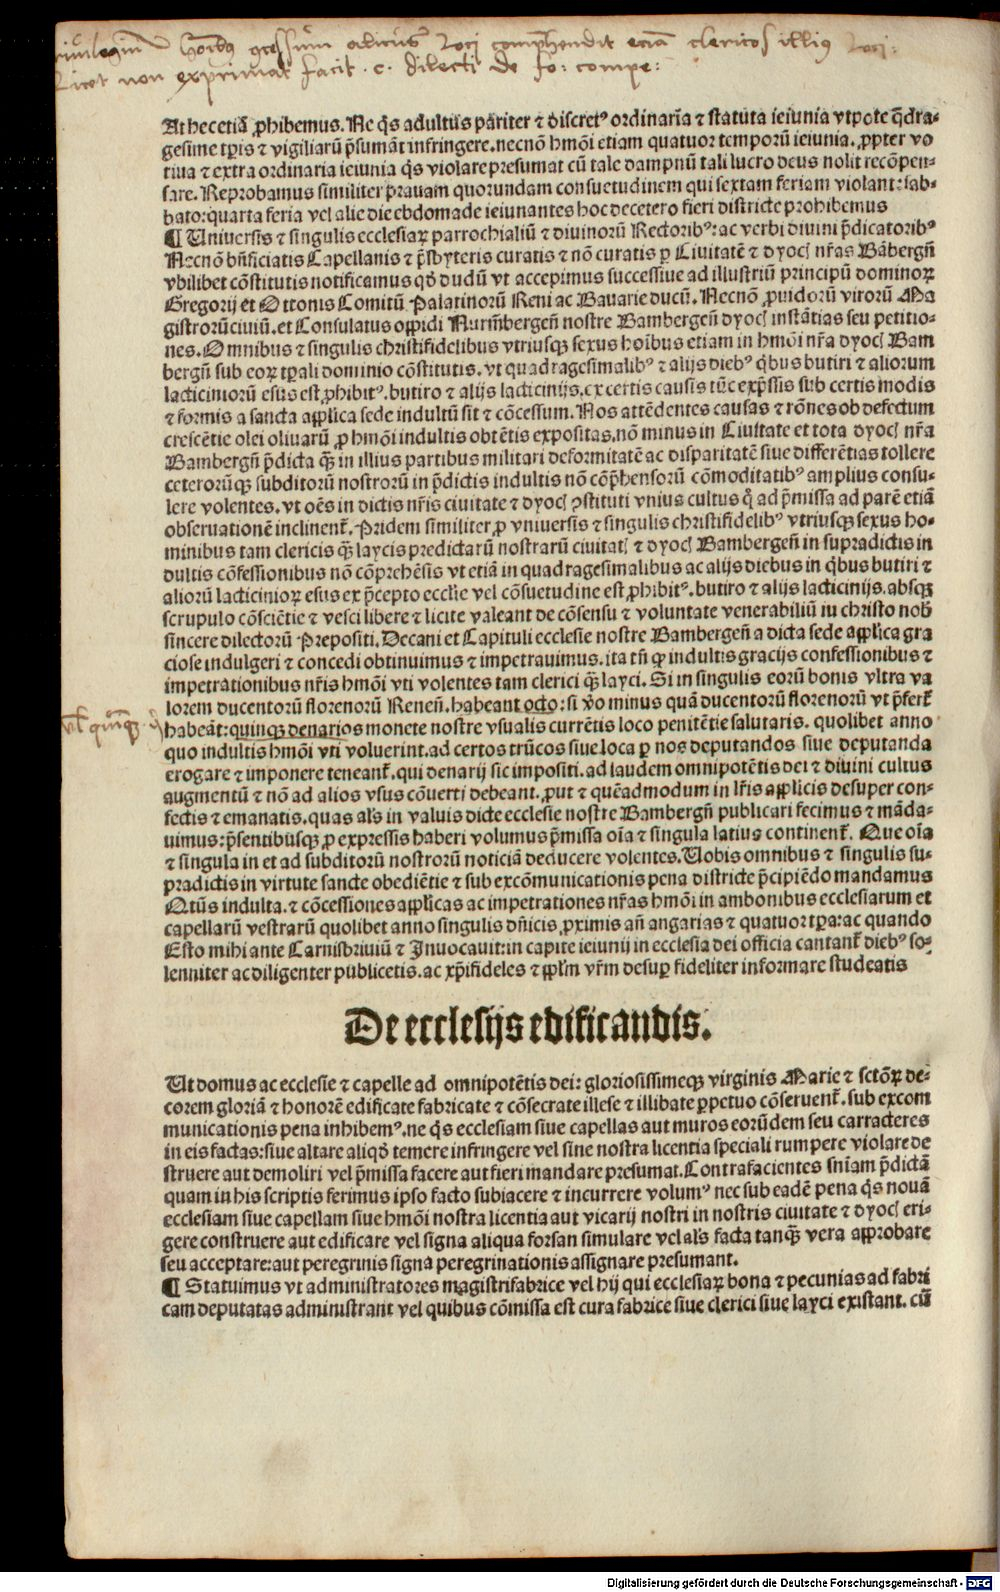 privilegiũ hoĩbꝯ ꝯcessum alicuiꝰ loci comp̃hendit eciã clericos illiꝯ loci:
licet non exprimat facit . c . dilecti de fo: compe:
At hec etiã ꝓhibemus. Ne q̃s adultus pariter ⁊ discretꝰ ordinaria ⁊ statuta ieiunia vtpote q̃dra-
gesime tꝑis ⁊ vigiliarũ p̃sumãt infringere. necnõ hmõi etiam quatuor temporũ ieiunia. ꝓpter vo
tiua ⁊ extra ordinaria ieiunia q̃s violare presumat cũ tale dampnũ tali lucro deus nolit recõpen-
sare. Reprobamus similiter prauam quorundam consuetudinem qui sextam feriam violant: sab-
bato: quarta feria vel alie die ebdomade ieiunantes hoc decetero fieri districte prohibemus
¶ Uniuersis ⁊ singulis ecclesiaꝝ parrochialiũ ⁊ diuinorũ Rectoribꝰ: ac verbi diuini p̃dicatoribꝰ
Necnõ bñficiatis Capellanis ⁊ p̃sbyteris curatis ⁊ nõ curatis ꝑ Ciuitatẽ ⁊ dyoc̃ nr̃as Bãbergeñ
vbilibet cõstitutis notificamus qď dudũ vt accepimus successiue ad illustriũ principũ dominoꝝ
Gregorij et Ottonis Comitũ Palatinorũ Reni ac Bauarie ducũ. Necnõ ꝓuidorũ virorũ Ma
gistrorũ ciuiũ. et Consulatus oppidi Nurm̃bergeñ nostre Bambergeñ dyoc̃ instãtias seu petitio-
nes. Omnibus ⁊ singulis christifidelibus vtriusqꝫ sexus hoĩbus etiam in hmõi nr̃a dyoc̃ Bam
bergeñ sub eoꝝ tꝑali dominio cõstitutis. vt quadragesimalibꝰ ⁊ alijs diebꝰ q̃bus butiri ⁊ aliorum
lacticiniorũ esus est ꝓhibitꝰ. butiro ⁊ alijs lacticinijs. ex certis causis tũc exp̃ssis sub certis modis
⁊ formis a sancta aplica sede indultũ sit ⁊ cõcessum. Nos attẽdentes causas ⁊ rõnes ob defectum
crescẽtie olei oliuarũ ꝓ hmõi indultis obtẽtis expositas. nõ minus in Ciuitate et tota dyoc̃ nr̃a
Bambergeñ p̃dicta qꝫ̃ in illius partibus militari deformitatẽ ac disparitatẽ siue differẽtias tollere
ceterorũqꝫ subditorũ nostrorũ in p̃dictis indultis nõ cõp̃hensorũ cõmoditatibꝰ amplius consu-
lere volentes. vt oẽs in dictis nr̃is ciuitate ⁊ dyoc̃ ꝯstituti vnius cultus q̃ ad p̃missa ad parẽ etiã
obseruationẽ inclinent̃. Pridem similiter ꝓ vniuersis ⁊ singulis christifidelibꝰ vtriusqꝫ sexus ho-
minibus tam clericis qꝫ̃ laycis predictarũ nostrarũ ciuitat̃ ⁊ dyoc̃ Bambergeñ in supradictis in
dultis cõfessionibus nõ cõprehẽsis vt etiã in quadragesimalibus ac alijs diebus in q̃bus butiri ⁊
aliorũ lacticinioꝝ esus ex p̃cepto ecclie vel cõsuetudine est ꝓhibitꝰ. butiro ⁊ alijs lacticinijs. absqꝫ
scrupulo cõsciẽtie ⁊ vesci libere ⁊ licite valeant de cõsensu ⁊ voluntate venerabiliũ in christo nob̃
sincere dilectorũ Prepositi. Decani et Capituli ecclesie nostre Bambergeñ a dicta sede aplica gra
ciose indulgeri ⁊ concedi obtinuimus ⁊ impetrauimus. ita tñ ꝙ indultis gracijs confessionibus ⁊
impetrationibus nr̃is hmõi vti volentes tam clerici qꝫ̃ layci. Si in singulis eorũ bonis vltra va
lorem ducentorũ florenorũ Reneñ. habeant octo: si ṽo minus quã ducentorũ florenorũ vt p̃fert̃
habeãt: quinqꝫ denarios monete nostre vsualis currẽtis loco penitẽtie salutaris. quolibet anno
quo indultis hmõi vti voluerint. ad certos trũcos siue loca ꝑ nos deputandos siue deputanda
erogare ⁊ imponere teneant̃. qui denarij sic impositi. ad laudem omnipotẽtis dei ⁊ diuini cultus
augmentũ ⁊ nõ ad alios vsus cõuerti debeant. ꝓut ⁊ quẽadmodum in lr̃is aplicis desuper con-
fectis ⁊ emanatis. quas al̃s in valuis dicte ecclesie nostre Bambergeñ publicari fecimus ⁊ mãda-
uimus: p̃sentibusqꝫ ꝓ expressis haberi volumus p̃missa oĩa ⁊ singula latius continent̃. Que oĩa
⁊ singula in et ad subditorũ nostrorũ noticiã deducere volentes. Uobis omnibus ⁊ singulis su-
pradictis in virtute sancte obediẽtie ⁊ sub excõmunicationis pena districte p̃cipiẽdo mandamus
Qtũs indulta. ⁊ cõcessiones aplicas ac impetrationes nr̃as hmõi in ambonibus ecclesiarum et
capellarũ vestrarũ quolibet anno singulis dñicis ꝓximis añ angarias ⁊ quatuor tꝑa: ac quando
Esto mihi ante Carnisbriuiũ ⁊ Inuocauit: in capite ieiunij in ecclesia dei officia cantant̃ diebꝰ so-
lenniter ac diligenter publicetis. ac xp̃ifideles ⁊ pplm̃ vr̃m desuꝑ fideliter informare studeatis
vl̃ quinqꝫ
De ecclesijs edificandis.
Ut domus ac ecclesie ⁊ capelle ad omnipotẽtis dei: gloriosissimeqꝫ virginis Marie ⁊ sctõꝝ de-
corem gloriã ⁊ honorẽ edificate fabricate ⁊ cõsecrate illese ⁊ illibate ꝑpetuo cõseruent̃. sub excom
municationis pena inhibemꝰ. ne q̃s ecclesiam siue capellas aut muros eorũdem seu carracteres
in eis factas: siue altare aliqď temere infringere vel sine nostra licentia speciali rumpere violare de
struere aut demoliri vel p̃missa facere aut fieri mandare presumat. Contrafacientes sniam p̃dictã
quam in his scriptis ferimus ipso facto subiacere ⁊ incurrere volumꝰ nec sub eadẽ pena q̃s nouã
ecclesiam siue capellam siue hmõi nostra licentia aut vicarij nostri in nostris ciuitate ⁊ dyoc̃ eri-
gere construere aut edificare vel signa aliqua forsan simulare vel al̃s facta tanqꝫ̃ vera approbare
seu acceptare: aut peregrinis signa peregrinationis assignare presumant.
¶ Statuimus vt administratores magistri fabrice vel hij qui ecclesiaꝝ bona ⁊ pecunias ad fabri
cam deputatas administrant vel quibus cõmissa est cura fabrice siue clerici siue layci existant. cũ
Digitalisierung gefördert durch die Deutsche Forschungsgemeinschaft - DFG